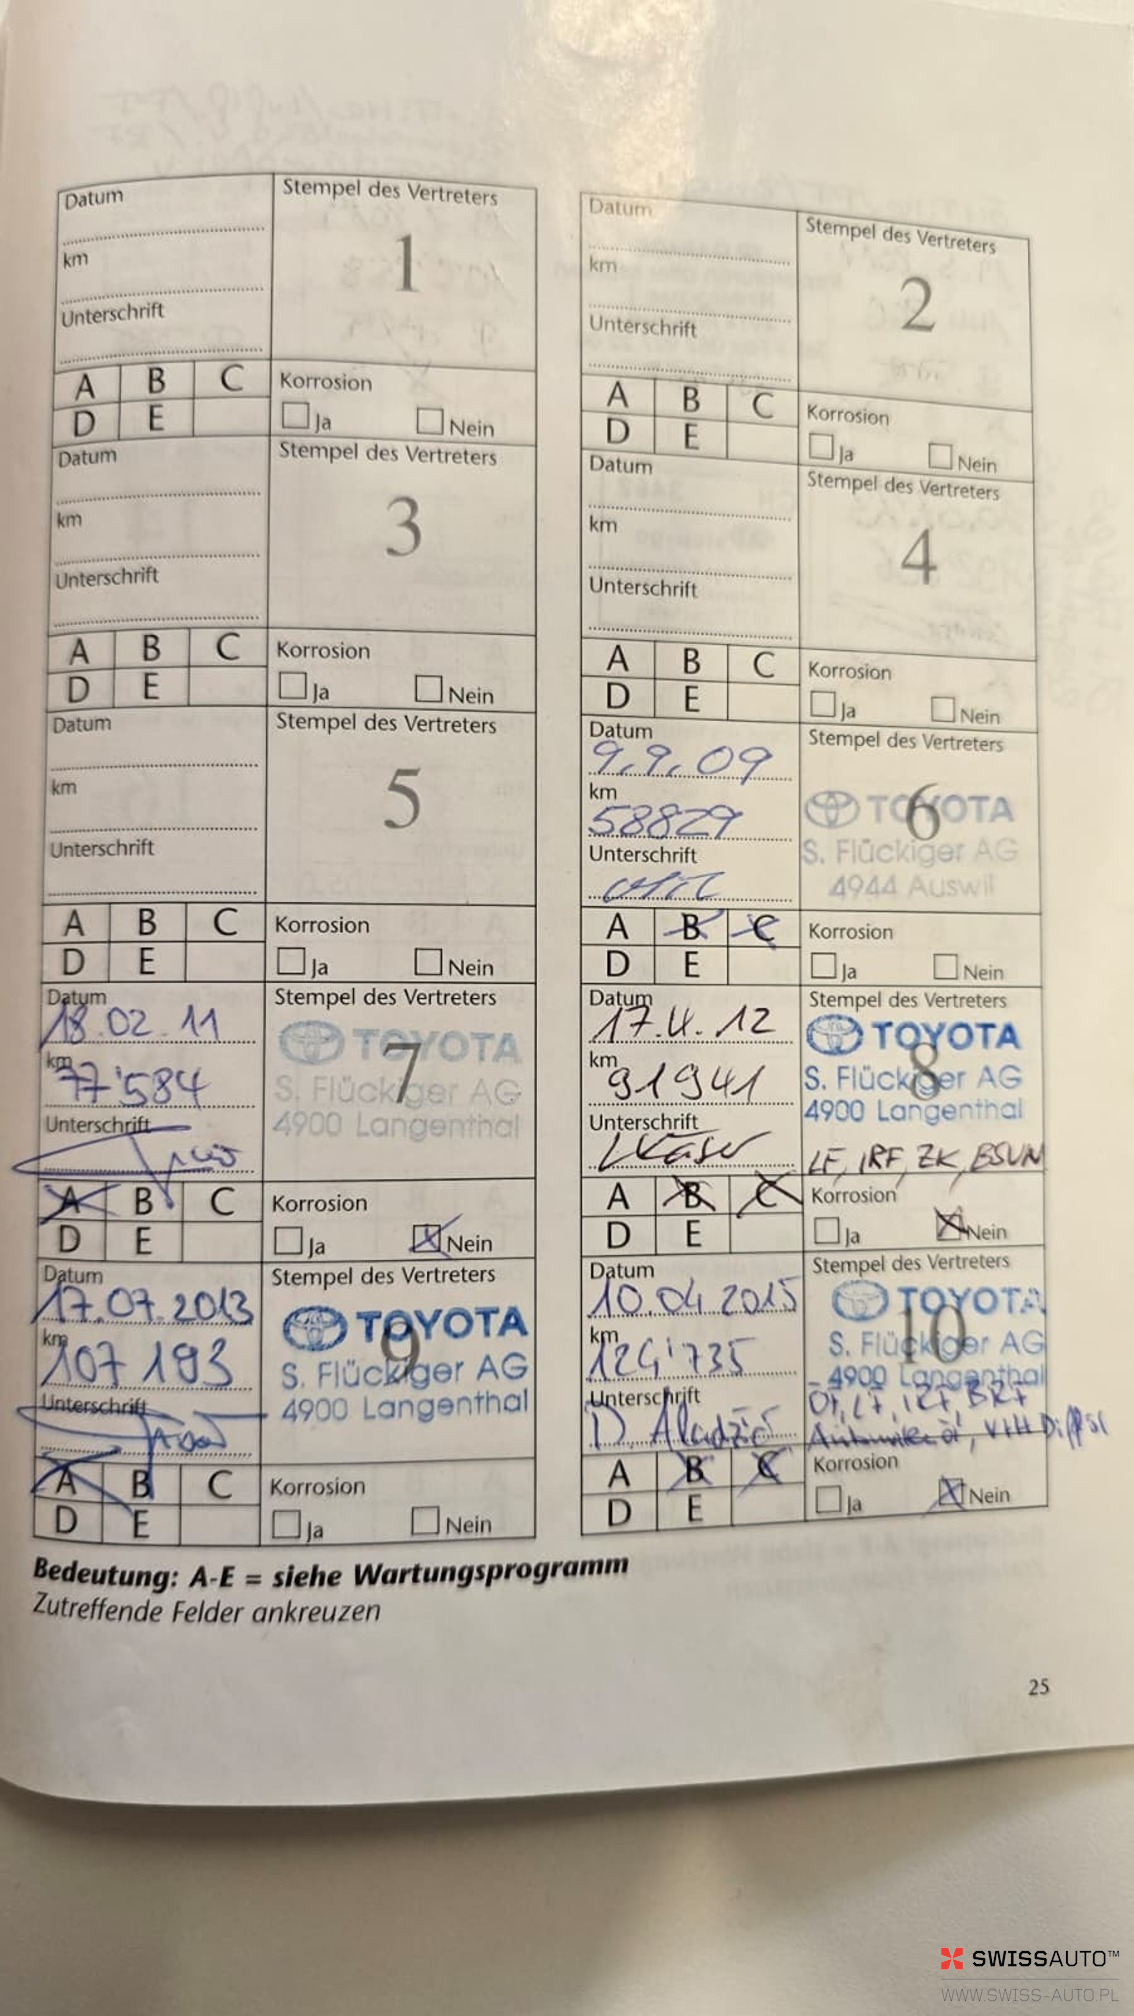 Datum
Stempel des Vertreters
1
km
Unterschrift
A B C
D E
Korrosion
Ja Nein
Datum
Stempel des Vertreters
2
km
Unterschrift
A B C
D E
Korrosion
Ja Nein
Datum
Stempel des Vertreters
3
km
Unterschrift
A B C
D E
Korrosion
Ja Nein
Datum
Stempel des Vertreters
4
km
Unterschrift
A B C
D E
Korrosion
Ja Nein
Datum
Stempel des Vertreters
5
km
Unterschrift
A B C
D E
Korrosion
Ja Nein
Datum
9.9.09
km
58829
Unterschrift
Stempel des Vertreters
6
TOYOTA
S. Flückiger AG
4944 Auswil
A B C
D E
Korrosion
Ja Nein
Datum
18.02.11
km
77'584
Unterschrift
Stempel des Vertreters
7
TOYOTA
S. Flückiger AG
4900 Langenthal
A B C
D E
Korrosion
Ja Nein
Datum
17.4.12
km
91941
Unterschrift
Stempel des Vertreters
8
TOYOTA
S. Flückiger AG
4900 Langenthal
LF, IRF, ZK, BSUM
A B C
D E
Korrosion
Ja Nein
Datum
17.07.2013
km
107 193
Unterschrift
Stempel des Vertreters
9
TOYOTA
S. Flückiger AG
4900 Langenthal
A B C
D E
Korrosion
Ja Nein
Datum
10.04.2015
km
124'735
Unterschrift
Stempel des Vertreters
10
TOYOTA
S. Flückiger AG
4900 Langenthal
A B C
D E
Korrosion
Ja Nein
Bedeutung: A-E = siehe Wartungsprogramm
Zutreffende Felder ankreuzen
25
SWISSAUTO™
WWW.SWISS-AUTO.PL